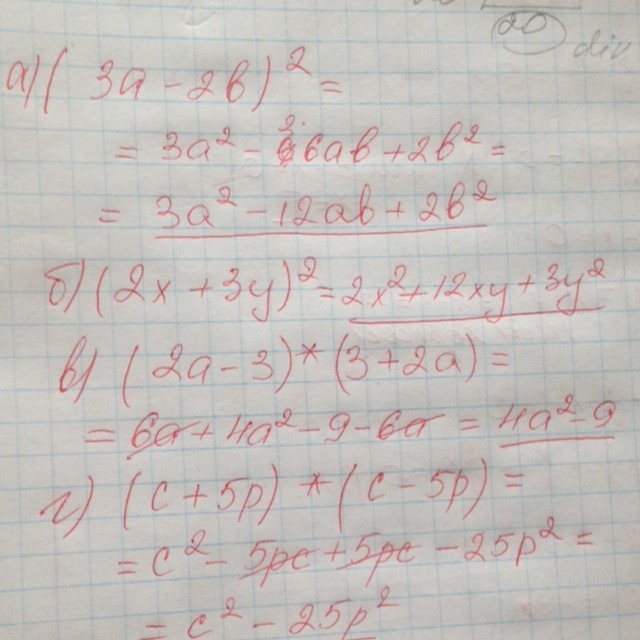 20
div
а) (3a - 2b)² =
= 3a² - 2·6ab + 2b² =
= 3a² - 12ab + 2b²
б) (2x + 3y)² = 2x² + 12xy + 3y²
в) (2a - 3) * (3 + 2a) =
= 6a + 4a² - 9 - 6a = 4a² - 9
г) (c + 5p) * (c - 5p) =
= c² - 5pc + 5pc - 25p² =
= c² - 25p²